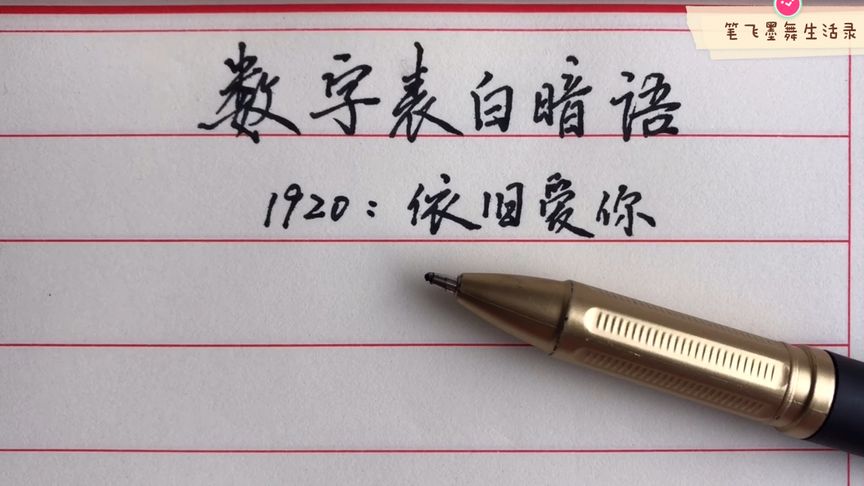 笔飞墨舞生活录
数字表白暗语
1920：依旧爱你